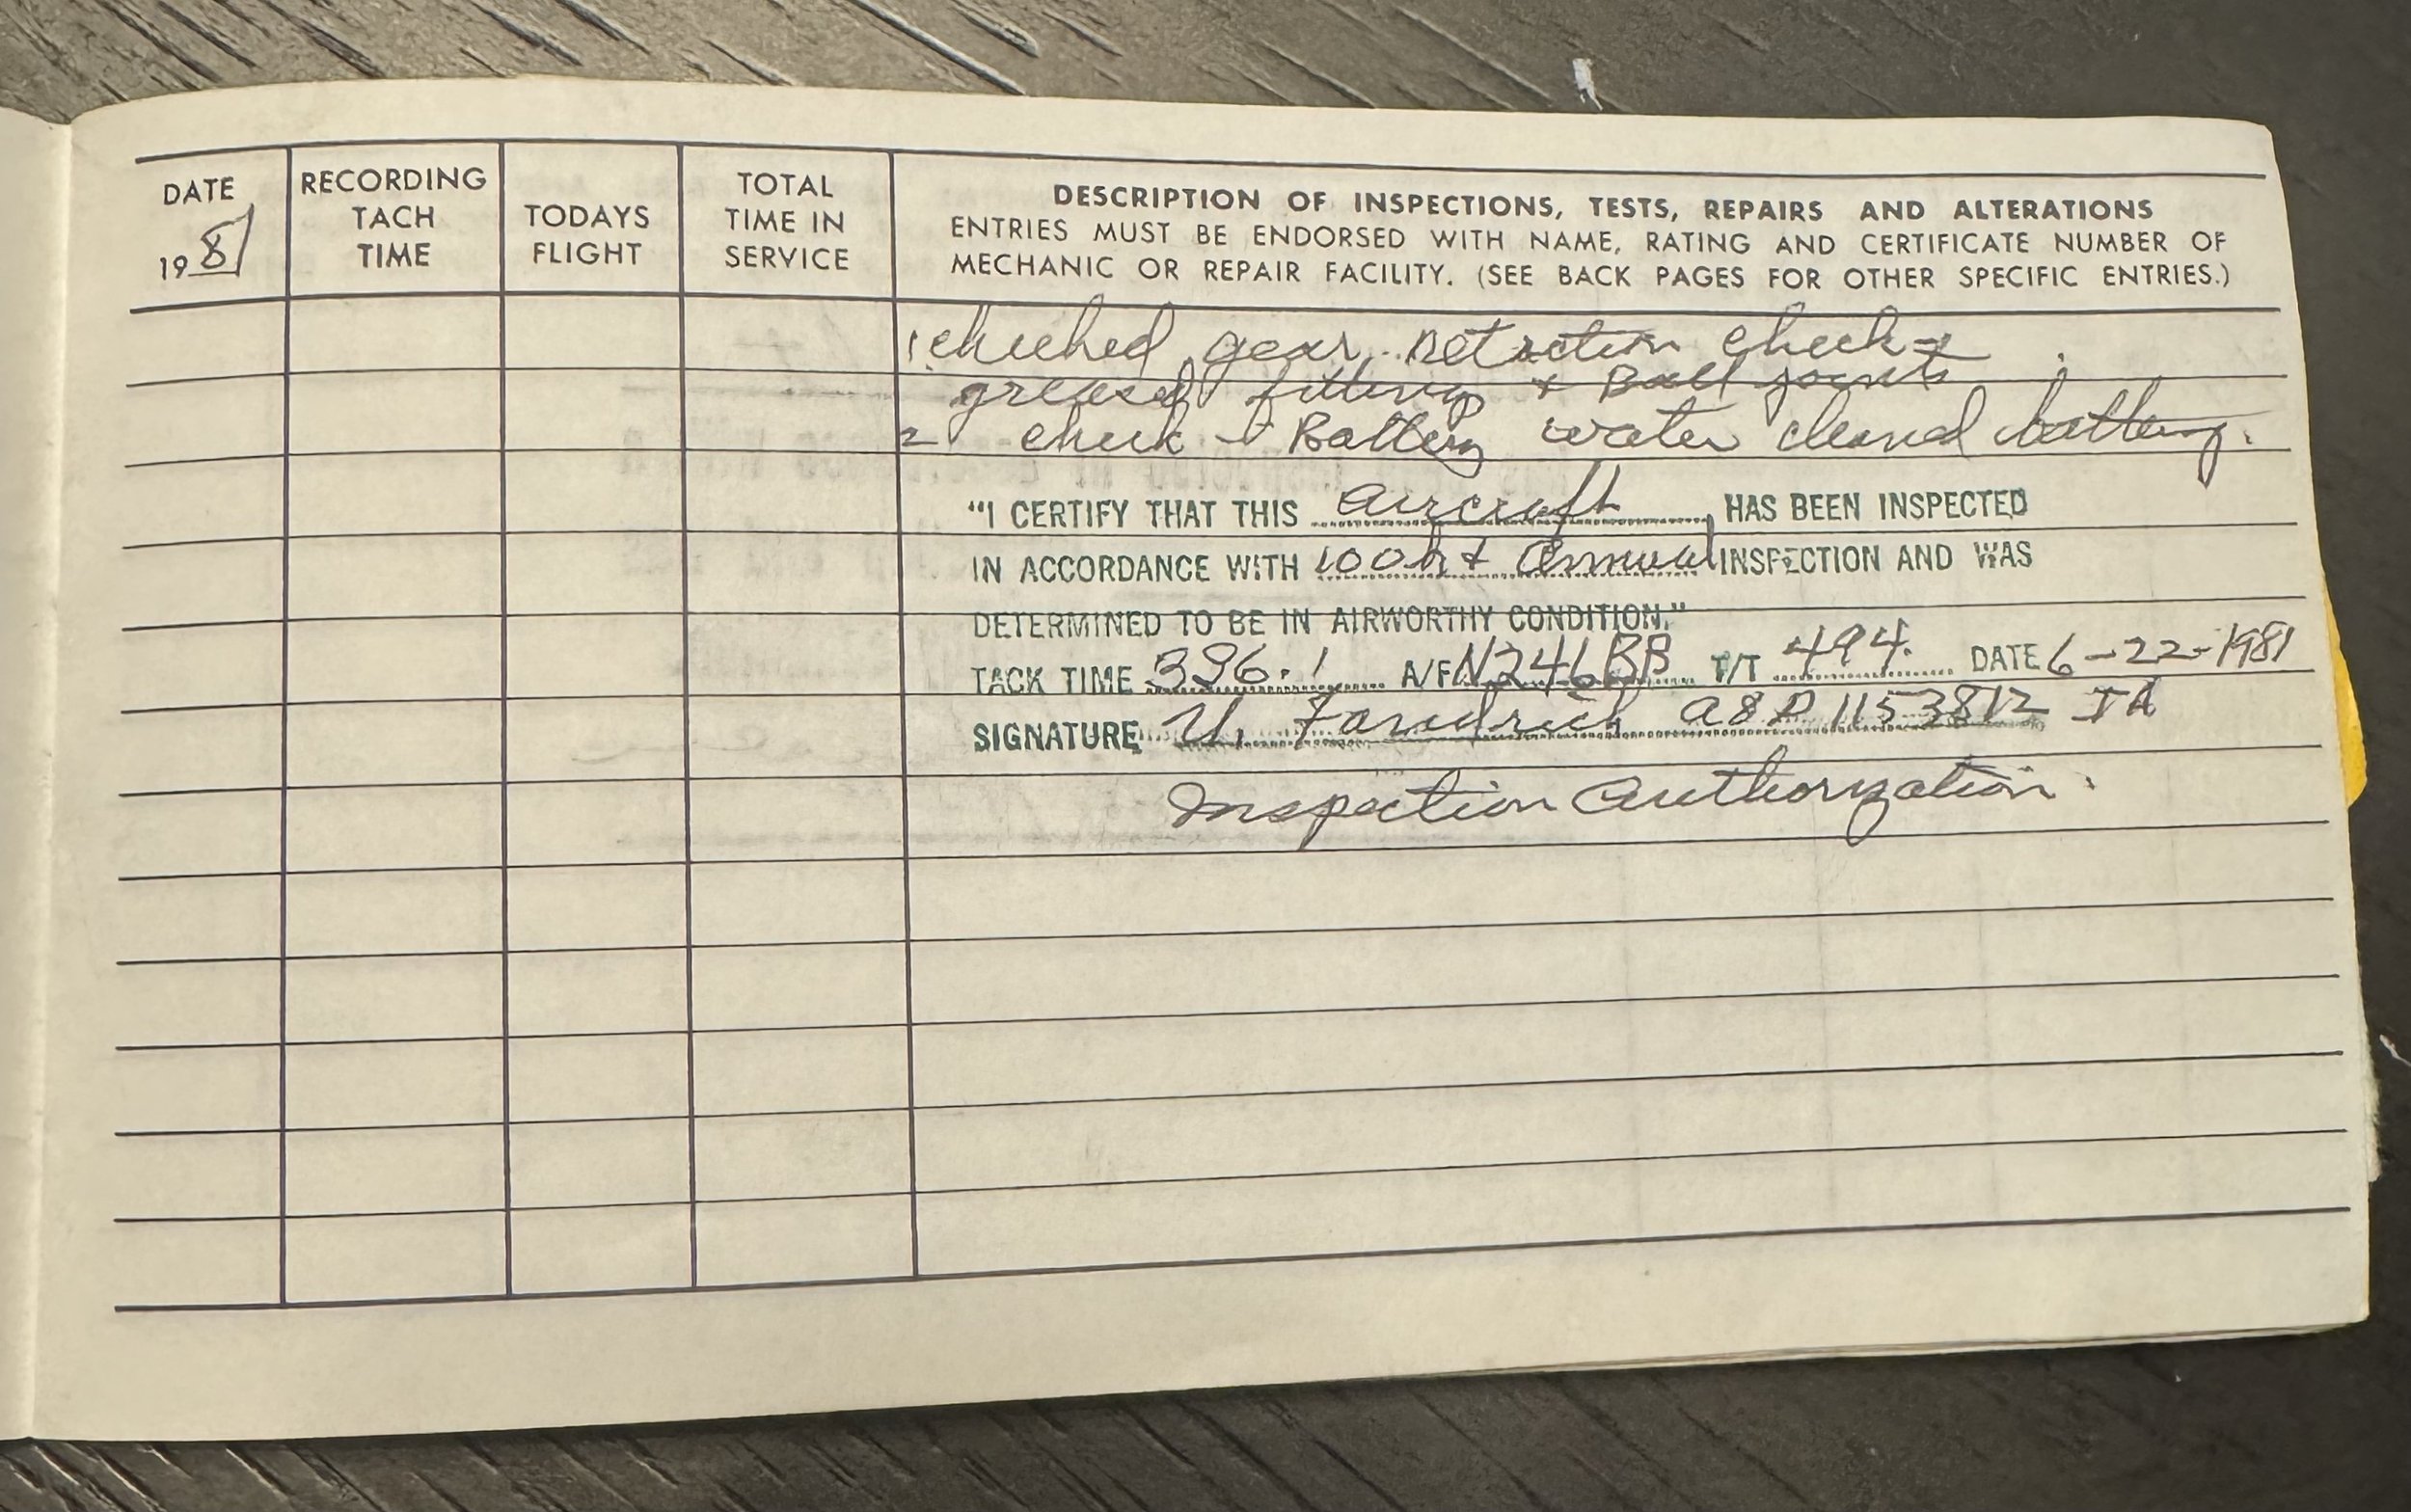 DATE
1981
RECORDING
TACH
TIME
TODAYS
FLIGHT
TOTAL
TIME IN
SERVICE
DESCRIPTION OF INSPECTIONS, TESTS, REPAIRS AND ALTERATIONS
ENTRIES MUST BE ENDORSED WITH NAME, RATING AND CERTIFICATE NUMBER OF
MECHANIC OR REPAIR FACILITY. (SEE BACK PAGES FOR OTHER SPECIFIC ENTRIES.)
1 checked gear retraction checks
greased fittings + Ball joints
2 check + Battery water cleaned battery.
"I CERTIFY THAT THIS aircraft HAS BEEN INSPECTED
IN ACCORDANCE WITH 100 hr + Annual INSPECTION AND WAS
DETERMINED TO BE IN AIRWORTHY CONDITION."
TACK TIME 396.1 A/F N246BB T/T 494. DATE 6-22-1981
SIGNATURE IA
Inspection Authorization.